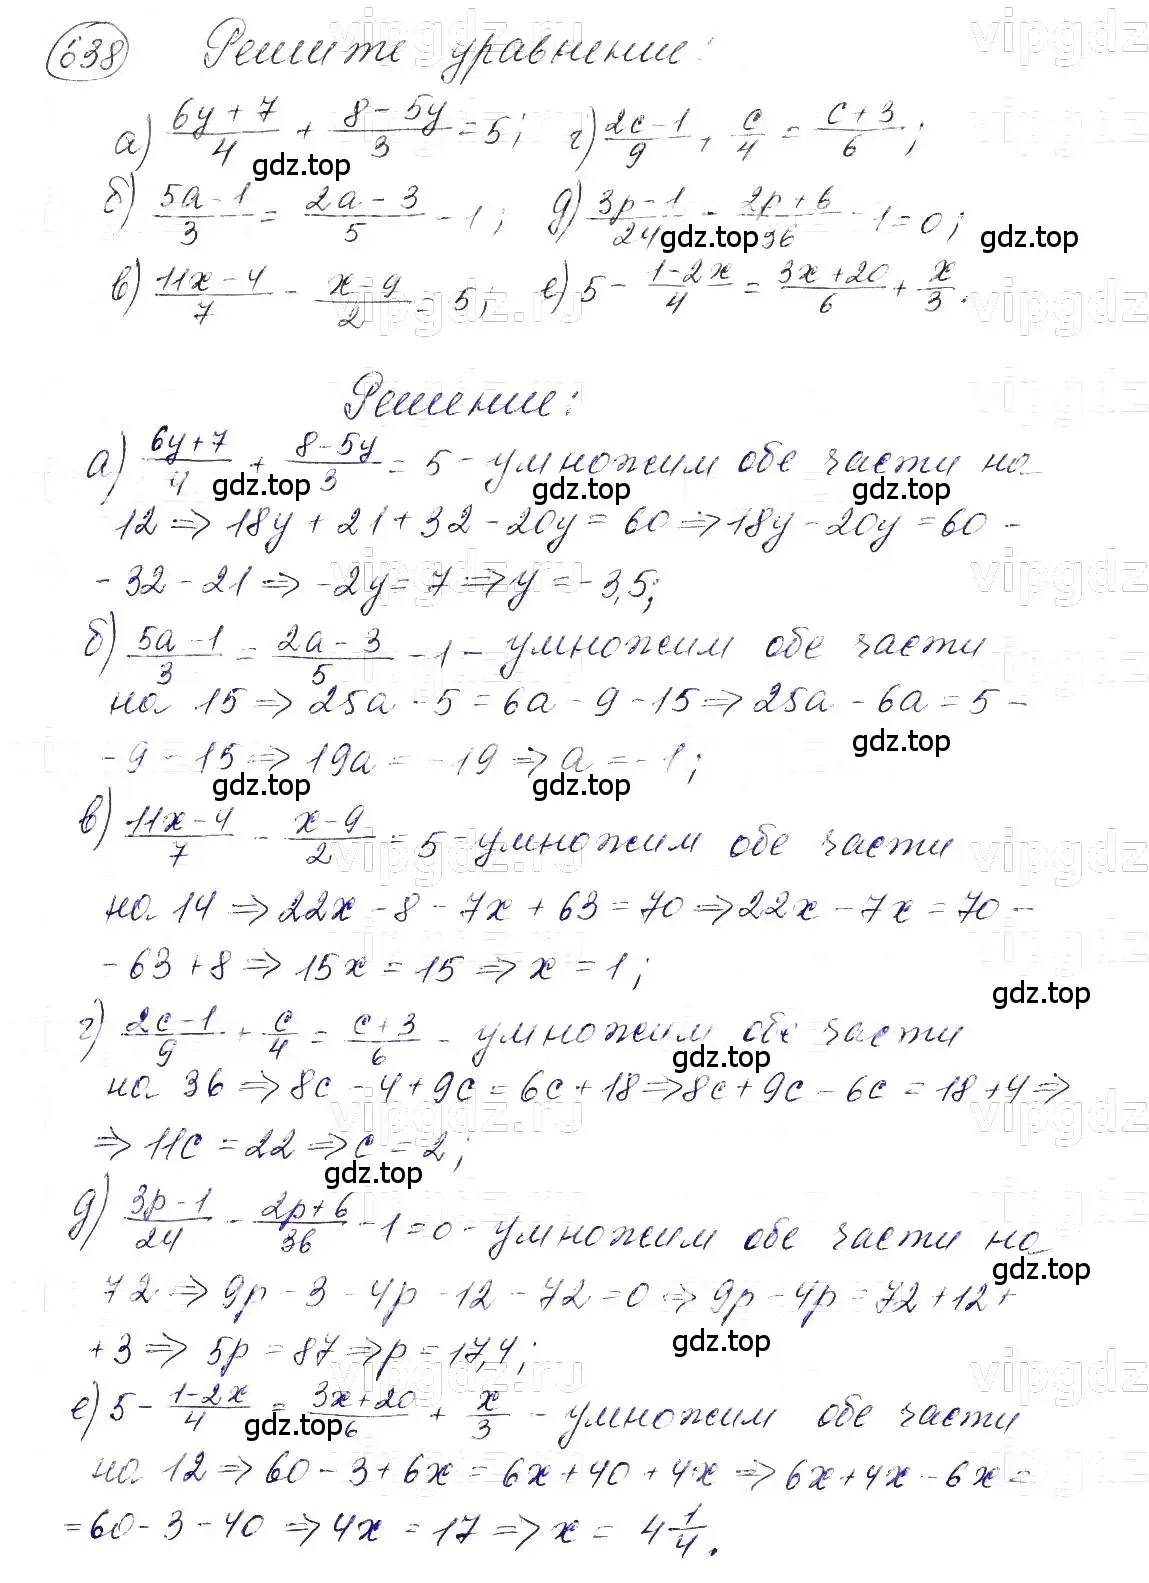 638 Решите уравнение:
а) (6y+7)/4 + (8-5y)/3 = 5; г) (2c-1)/9 + c/4 = (c+3)/6;
б) (5a-1)/3 = (2a-3)/5 - 1; д) (3p-1)/24 - (2p+6)/36 - 1 = 0;
в) (11x-4)/7 - (x-9)/2 = 5; е) 5 - (1-2x)/4 = (3x+20)/6 + x/3.
Решение:
а) (6y+7)/4 + (8-5y)/3 = 5 - умножим обе части на
12 => 18y + 21 + 32 - 20y = 60 => 18y - 20y = 60 -
- 32 - 21 => -2y = 7 => y = -3,5;
б) (5a-1)/3 = (2a-3)/5 - 1 - умножим обе части
на 15 => 25a - 5 = 6a - 9 - 15 => 25a - 6a = 5 -
- 9 - 15 => 19a = -19 => a = -1;
в) (11x-4)/7 - (x-9)/2 = 5 - умножим обе части
на 14 => 22x - 8 - 7x + 63 = 70 => 22x - 7x = 70 -
- 63 + 8 => 15x = 15 => x = 1;
г) (2c-1)/9 + c/4 = (c+3)/6 - умножим обе части
на 36 => 8c - 4 + 9c = 6c + 18 => 8c + 9c - 6c = 18 + 4 =>
=> 11c = 22 => c = 2;
д) (3p-1)/24 - (2p+6)/36 - 1 = 0 - умножим обе части на
72 => 9p - 3 - 4p - 12 - 72 = 0 => 9p - 4p = 72 + 12 +
+ 3 => 5p = 87 => p = 17,4;
е) 5 - (1-2x)/4 = (3x+20)/6 + x/3 - умножим обе части
на 12 => 60 - 3 + 6x = 6x + 40 + 4x => 6x + 4x - 6x =
= 60 - 3 - 40 => 4x = 17 => x = 4 1/4.
gdz.top
vipgdz.ru